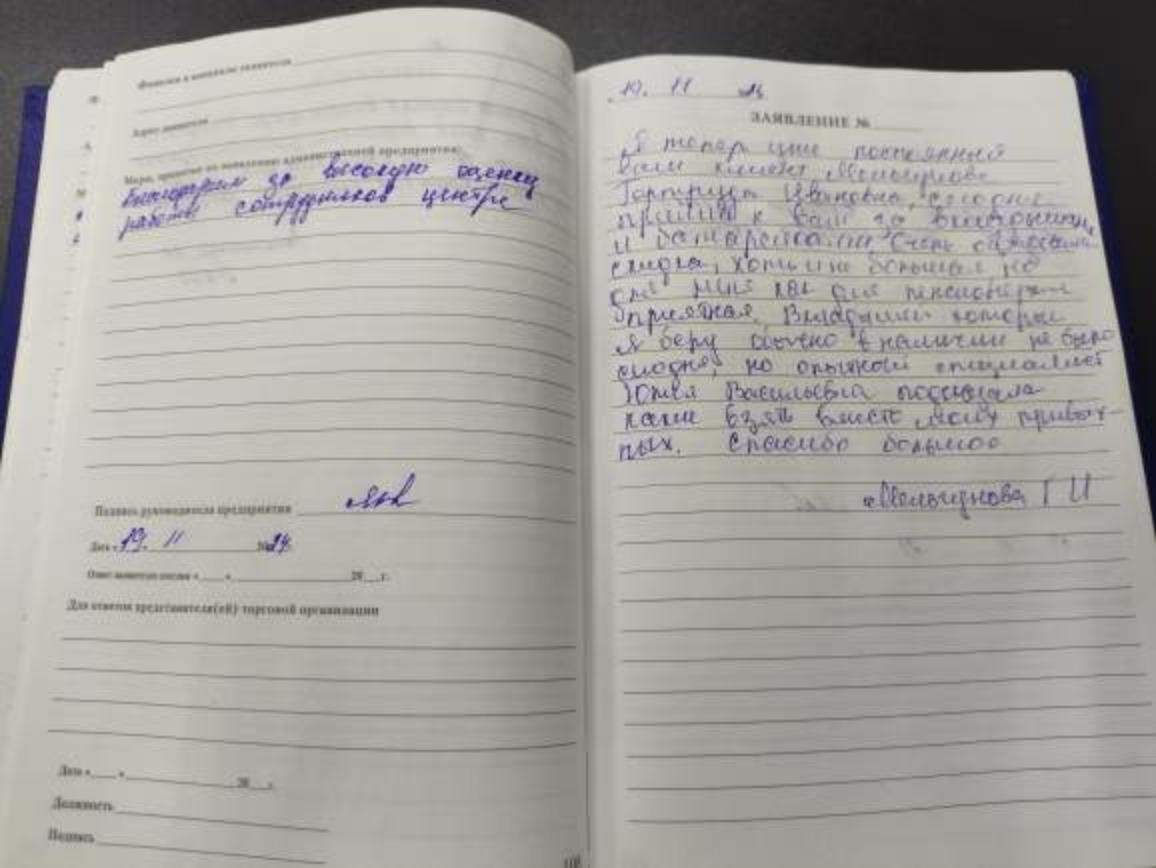 Фамилия и инициалы заявителя
Адрес заявителя
Меры, принятые по заявлению администрацией предприятия:
Благодарим за высокую оценку
работы сотрудников центра
Подпись руководителя предприятия
Дата « 19. 11 24.
Ответ заявителю послан «___» 20___г.
Для ответов представителя(ей) торговой организации
Дата «___» 20___г.
Должность
Подпись
19. 11
ЗАЯВЛЕНИЕ №
Я теперь уже постоянный
ваш клиент
Ивановна, сегодня
пришла к вам за вкладышами
и батарейками. Очень
скидка, хоть и не большая, но
для меня как для пенсионерки
приятная. Вкладыши которые
я беру обычно в наличии не было
сегодня, но опытный специалист
Юлия Васильевна подсказала
какие взять вместо моих привыч-
ных. Спасибо большое
Г И